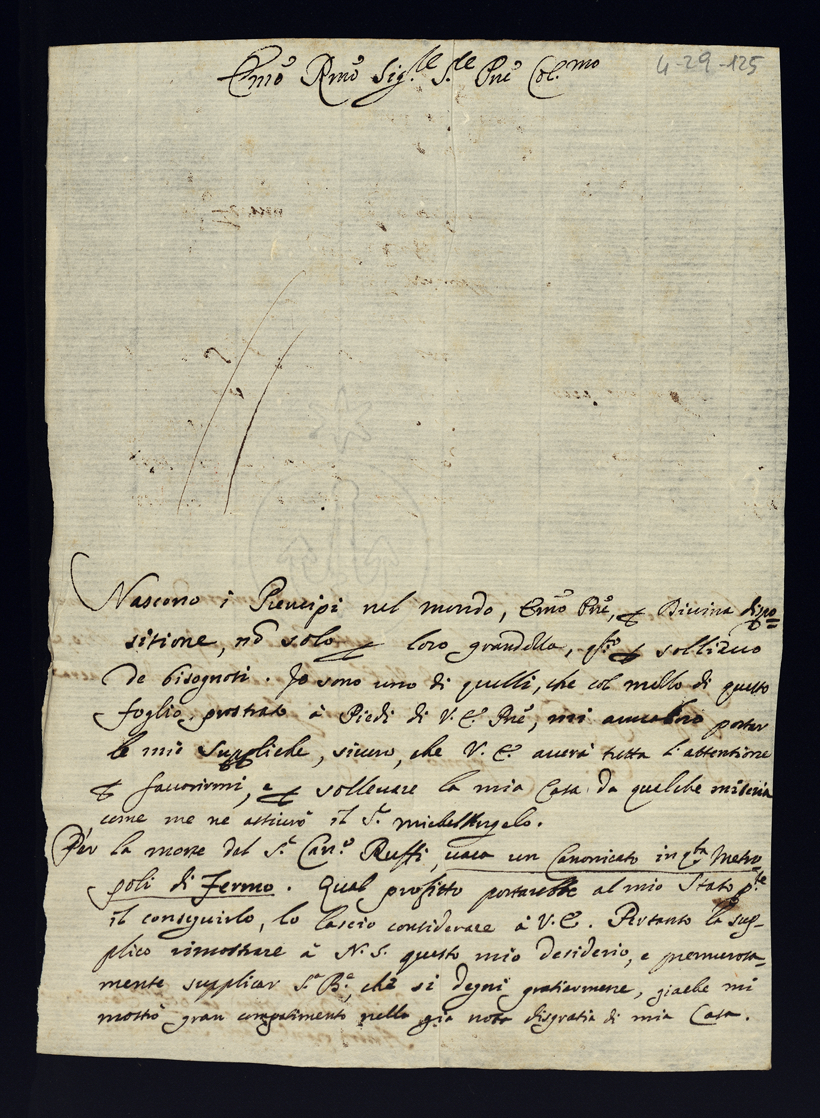 Emõ Rmõ Sig.re S.re Pnẽ Col.mo
4-29-125
Nascono i Prencipi nel mondo, Emõ Pnẽ, p Divina dispo=
sitione, nõ solo p loro grandezza, p sollievo
de bisognosi. Io sono uno di quelli, che col mezzo di questo
foglio, prostrato à Piedi di V. E. Pnẽ, mi portar
le mie suppliche, sicuro, che V. E. averà tutta l'attentione
p favorirmi, e p sollevare la mia Casa da qualche miseria
come me ne assicurò il S.r Michel'Angelo.
Per la morte del S.r Can.o Ruffi, vaca un Canonicato in q.ta Metro=
poli di Fermo. Qual profitto portarebbe al mio Stato p.te
il conseguirlo, lo lascio considerare à V. E. Pertanto la sup=
plico rimostrare à N. S. questo mio desiderio, e premurosa=
mente supplicar S.a B.e, che si degni gratiarmene, giache mi
mostrò gran compatimento nella già nota disgratia di mia Casa.